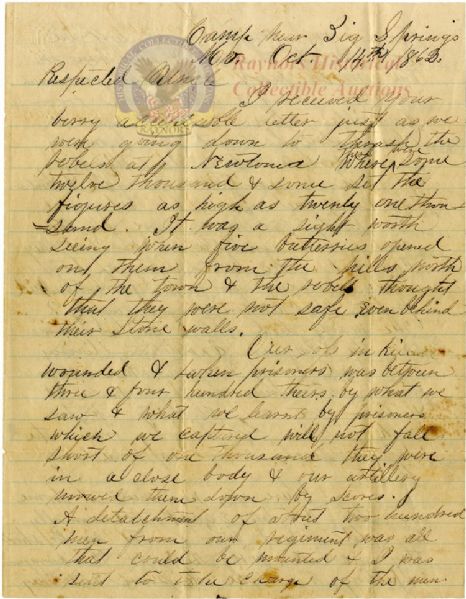 Camp Near Big Springs
Mo. Oct 14th 1862.
Respected
I received your
berry letter just as we
were going down to thrash the
rebels at Newtonia where some
twelve thousand & some set the
figures as high as twenty one thou
sand. It was a sight worth
seeing when five batterries opened
on them from the hills north
of the town & the rebels thought
that they were not safe even behind
their stone walls.
Our loss in
wounded & prisoners was between
three & four hundred theirs by what we
saw & what we learnt by prisoners
which we captured will not fall
short of one thousand they were
in a close body & our artillery
mowed them down by scores.
A detatchment of about two hundred
men from our regiment was all
that could be mounted & I was
sent to take charge of the men
Raynors Historical
Collectible Auctions
HISTORICAL COLLECTIBLE
RAYNORS